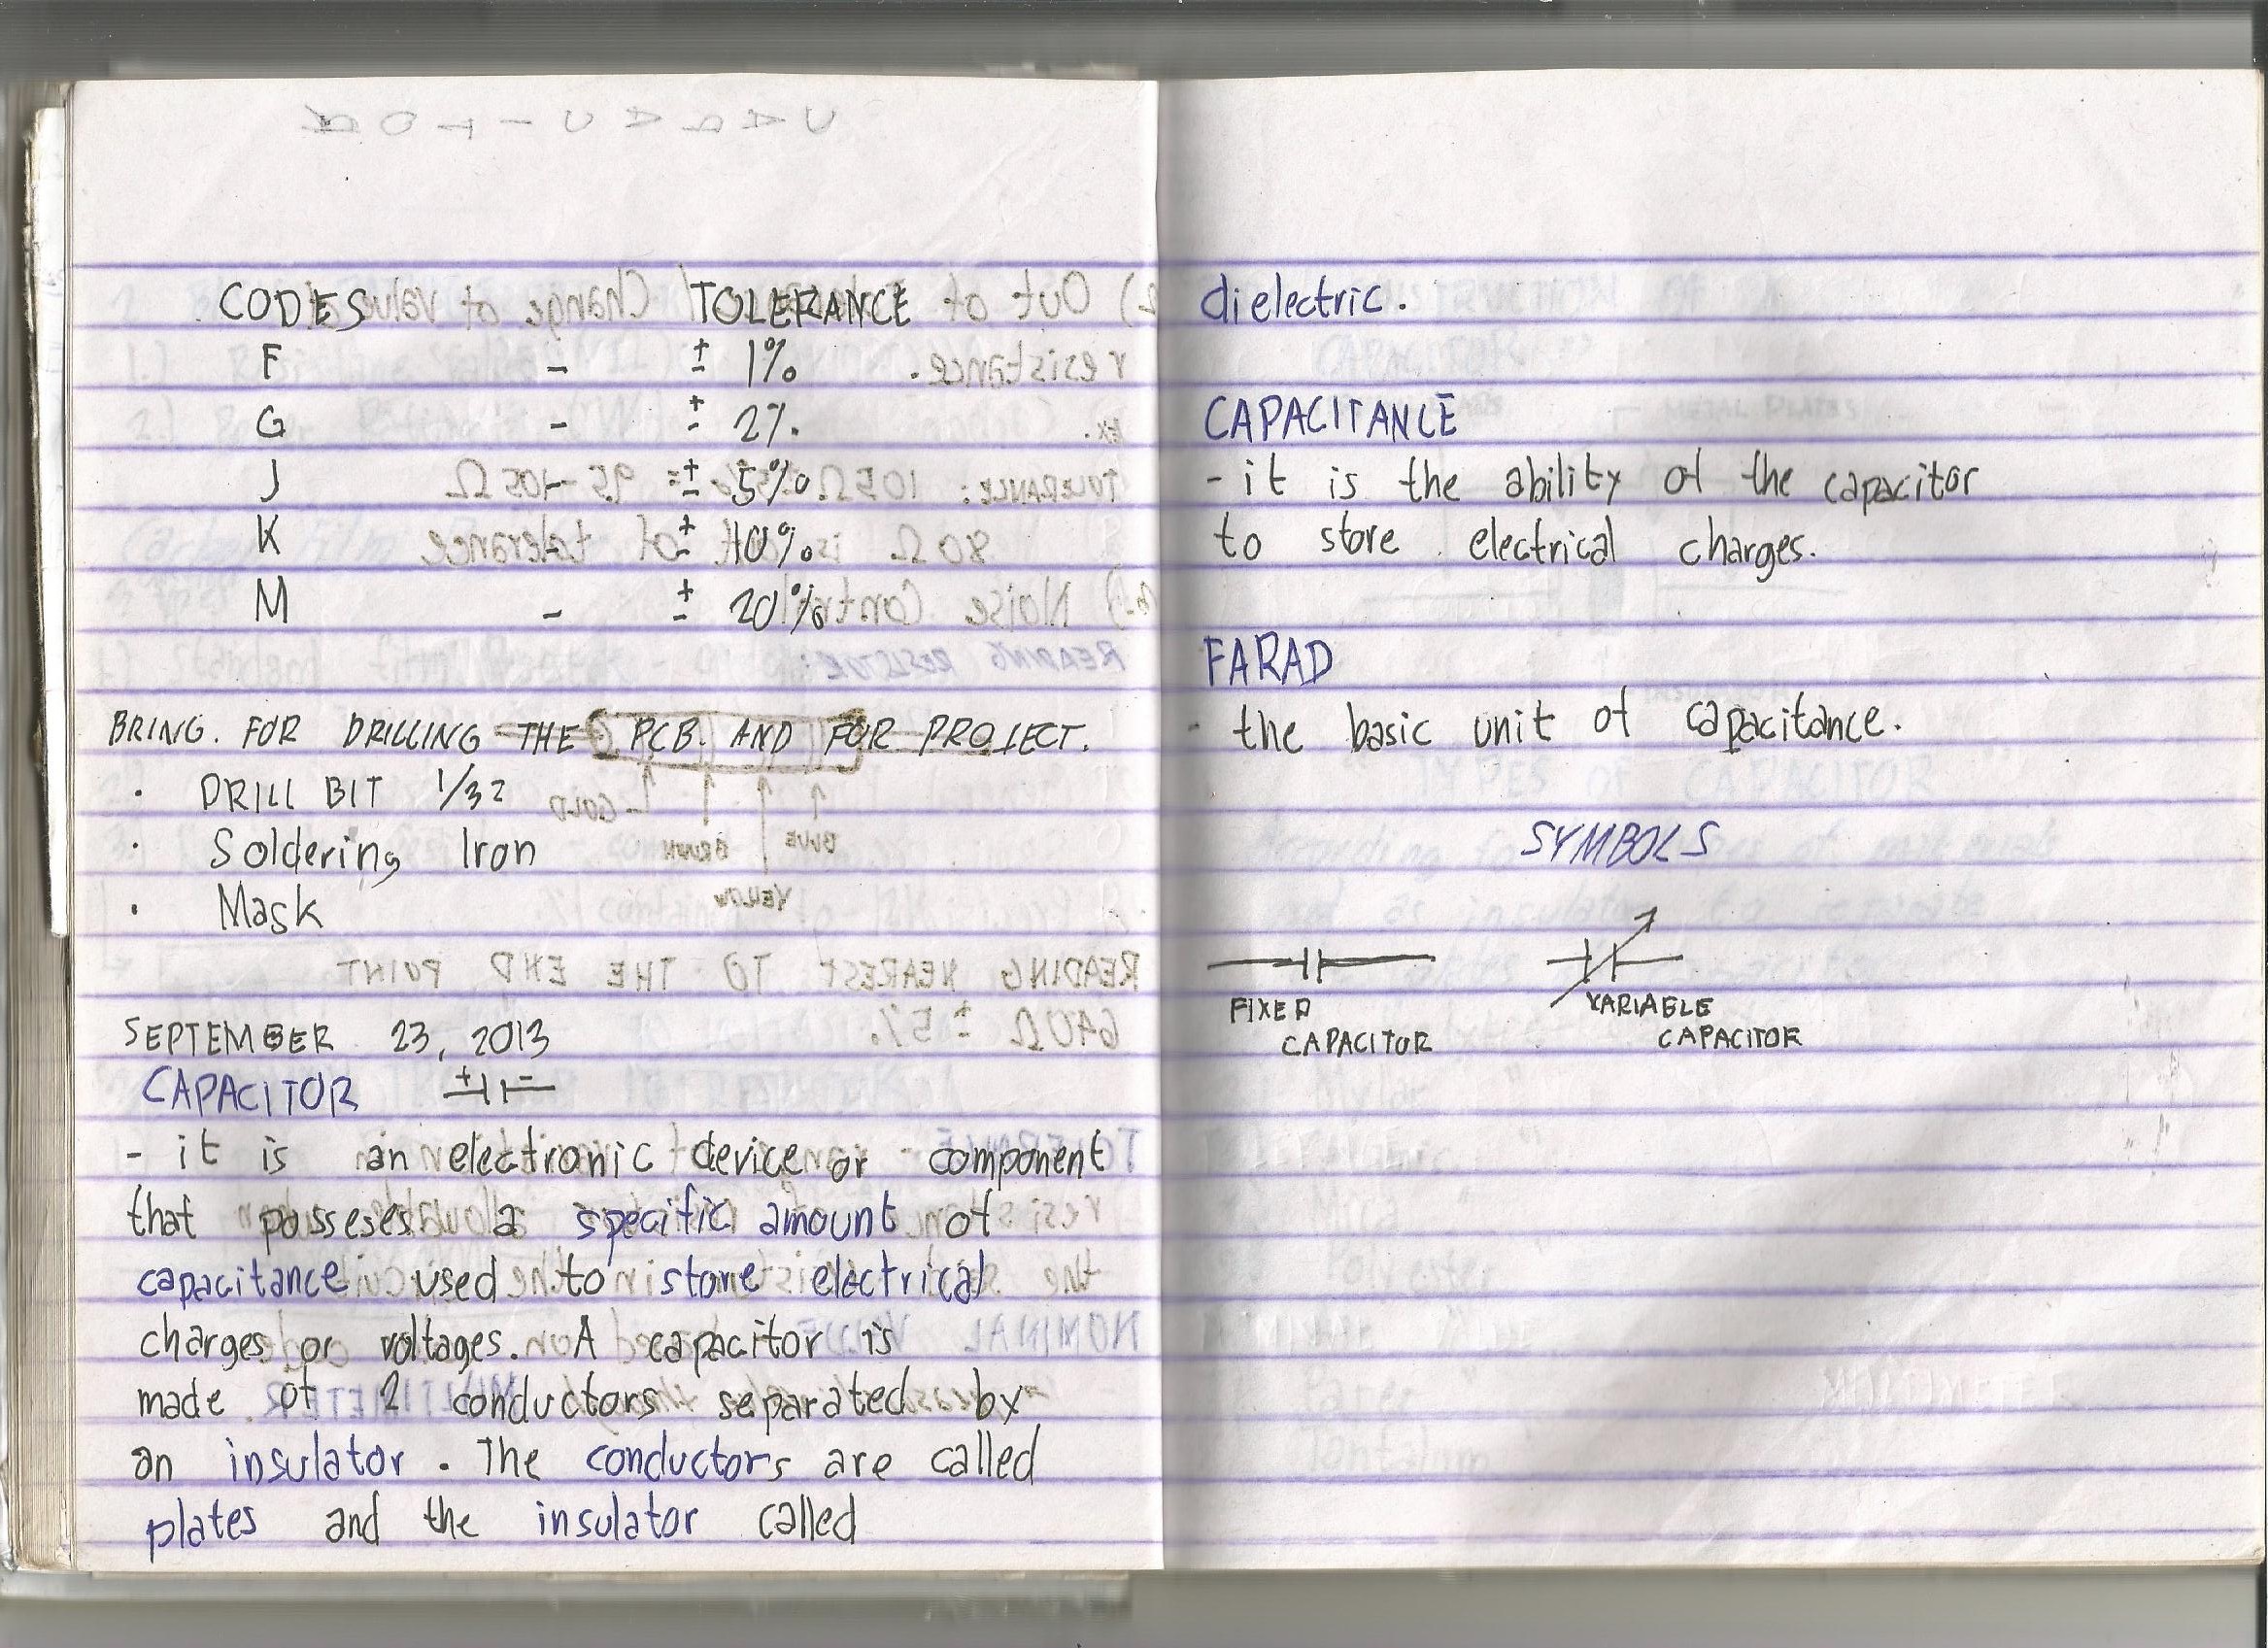 CODES TOLERANCE
F - ± 1%
G - ± 2%
J - ± 5%
K - ± 10%
M - ± 20%
BRING. FOR DRILLING THE PCB. AND FOR PROJECT.
· DRILL BIT 1/32
· Soldering Iron
· Mask
SEPTEMBER 23, 2013
CAPACITOR + -
- it is an electronic device or component
that posseses a specific amount of
capacitance used to store electrical
charges or voltages. A capacitor is
made of 2 conductors separated by
an insulator. The conductors are called
plates and the insulator called
dielectric.
CAPACITANCE
- it is the ability of the capacitor
to store electrical charges.
FARAD
- the basic unit of capacitance.
SYMBOLS
FIXED
CAPACITOR
VARIABLE
CAPACITOR